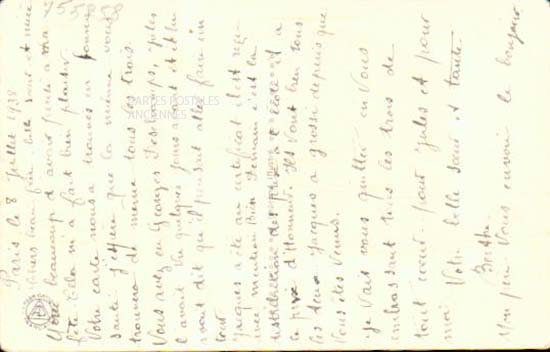 Paris le 8 Juillet 1938
Chers beau frère belle sœur et nièce
beaucoup d'avoir pensé a ma
fête Cela m'a fait bien plaisir
Votre carte nous a trouvés en bonne
santé J'espère que la même vous
trouvera de même tous les trois.
Vous avez eu Georges Desloups, Jules
l'avait vu quelques jours avant et il lui
avait dit qu'il pensait aller faire un
tour
Jacques a été au certificat il est reçu
avec mention Bien Demain c'est la
distribution des prix a l'école il a
le prix d'Honneur. Ils vont bien tous
les deux Jacques a grossi depuis que
vous êtes venus.
Je vais vous quitter en vous
embrassant tous les trois de
tout cœur pour Jules et pour
moi Votre belle sœur et tante
Berthe
Vous envoie le bonjour
CARTES POSTALES
ANCIENNES